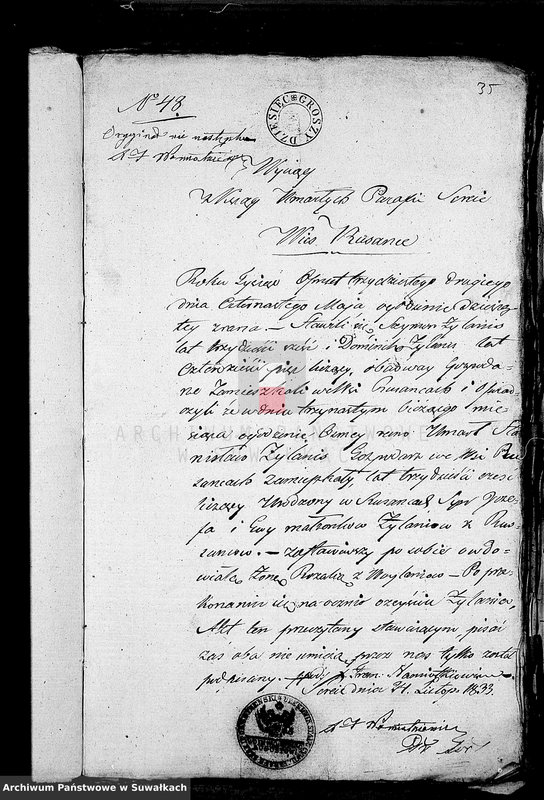 35
No 48.
DZIESIĘĆ GROSZY
Oryginał nie
Wyciąg
z Księgi Umarłych Parafii Sereie
Wieś Rusance
Roku Tysiąc Ośmset trzydziestego drugiego
dnia Czternastego Maja o godzinie dziewią-
tey zrana — Stawili się Szymon Zylanis
lat trzydzieści sześć i Dominik Zylanis lat
czterdzieści pięć liczący, obadway Gospoda-
rze Zamieszkali we Wsi Rusancach i Oświad-
czyli że w dniu trzynastym bieżącego mie-
siąca o godzinie Osmey rano Umarł Sta-
nisław Zylanis Gospodarz we Wsi Ru-
sancach zamieszkały lat trzydzieści
liczący Urodzony w Rusancach Syn Joze-
fa i Ewy małżonków Zylanisow z Rus-
sancow. — zostawiwszy po sobie owdo-
wiałę Żonę Rozalię z — Po prze-
konaniu się na ocznie o zeyściu Zylanisa,
Akt ten przeczytany stawiaiącym, pisać
zaś oba nie umieią przez nas tylko został
podpisany. — X. Fran.
Sereie dnia 21 Lutego 1833.
Archiwum Państwowe w Suwałkach